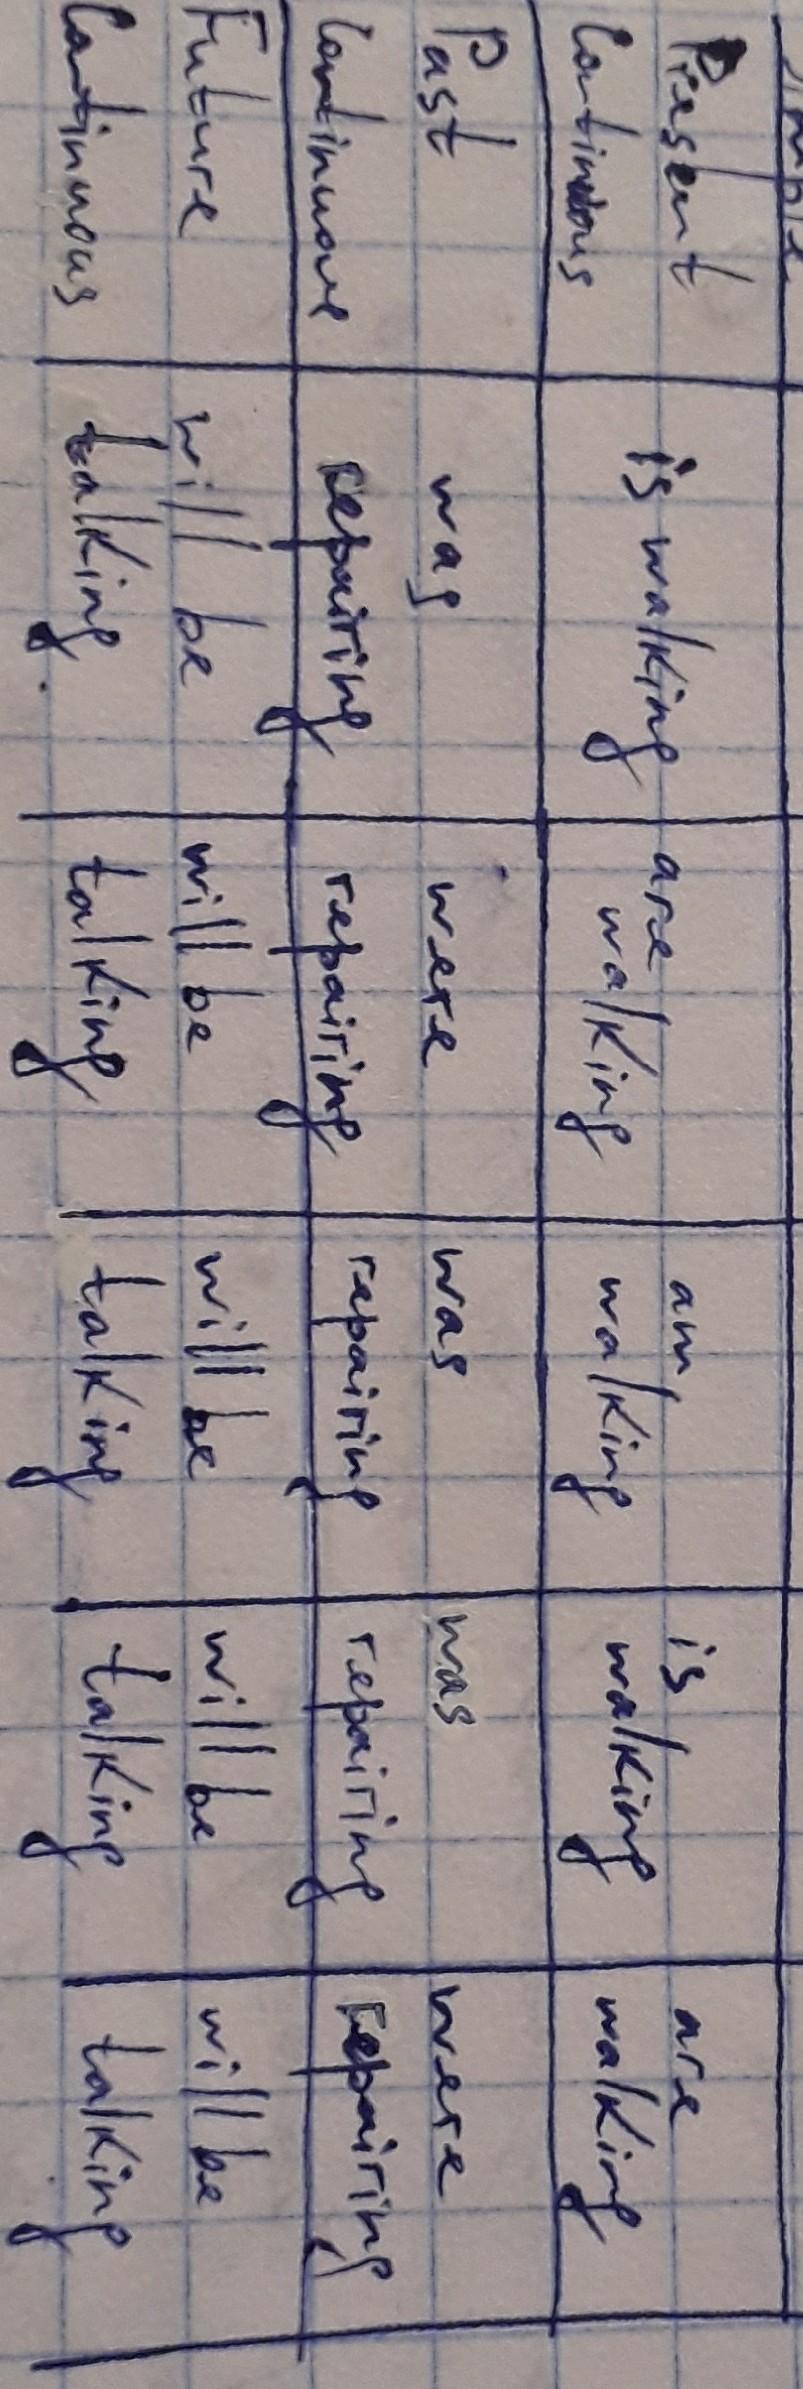 Present
Continuous
is walking
are
walking
am
walking
is
walking
are
walking
Past
Continuous
was
repairing
were
repairing
was
repairing
was
repairing
were
repairing
Future
Continuous
will be
talking
will be
talking
will be
talking
will be
talking
will be
talking